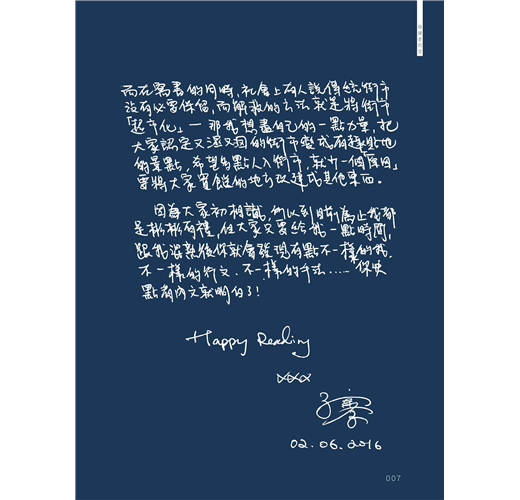 而在寫書的同時，社會上有人說傳統街市
沒有必要保留，而解救的方法就是將街市
「超市化」— 那我想盡自己的一點力量，把
大家認定又濕又囧的街市變成有趣點地
的景點，希望多點人入街市，就少一個「原因」
要將大家買餸的地方改建成其他東西。
因為大家初相識，所以到目前為止我都
是彬彬有禮，但大家又要給我一點時間，
跟我混熟後你就會發現有點不一樣的我，
不一樣的行文、不一樣的手法…… 你快
點看內文就明白了！
Happy Reading
xxx
02.06.2016
007